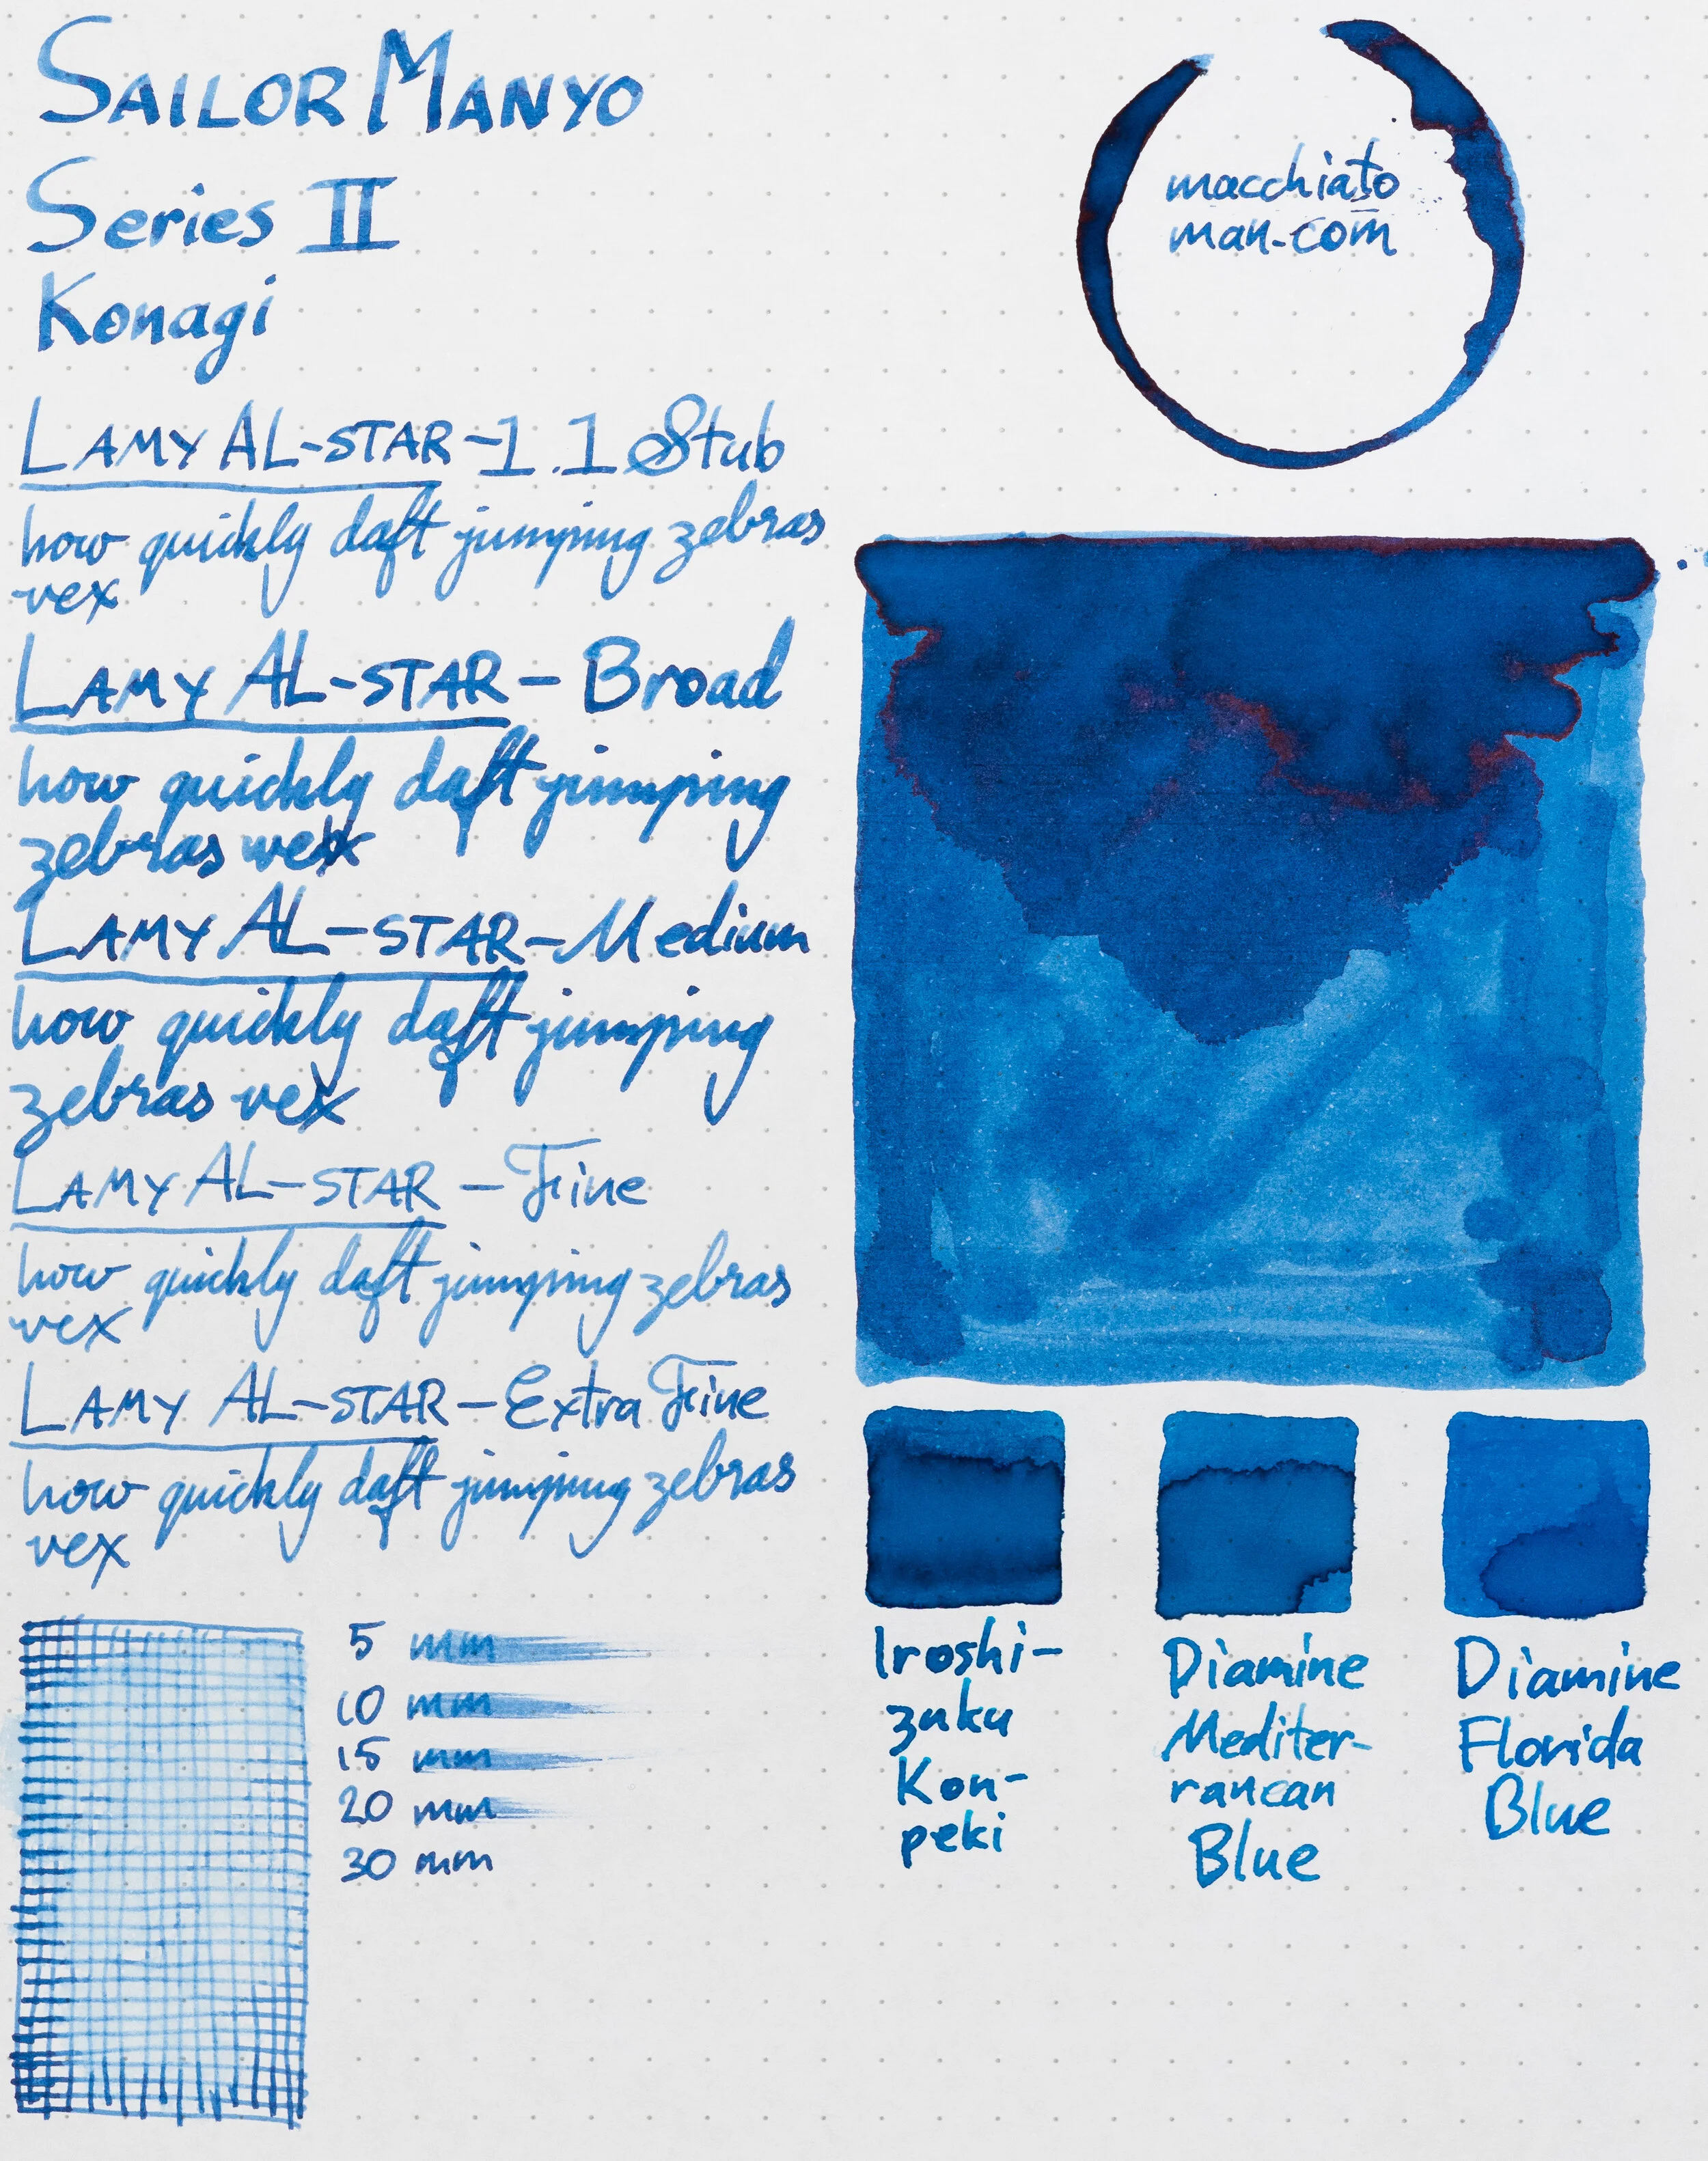 SAILOR MANYO
Series II
Konagi
LAMY AL-STAR-1.1 Stub
how quickly daft jumping zebras
vex
LAMY AL-STAR - Broad
how quickly daft jumping
zebras vex
LAMY AL-STAR-Medium
how quickly daft jumping
zebras vex
LAMY AL-STAR - Fine
how quickly daft jumping zebras
vex
LAMY AL-STAR-Extra Fine
how quickly daft jumping zebras
vex
5 mm
10 mm
15 mm
20 mm
30 mm
macchiato
man.com
Iroshi-
zuku
Kon-
peki
Diamine
Mediter-
ranean
Blue
Diamine
Florida
Blue